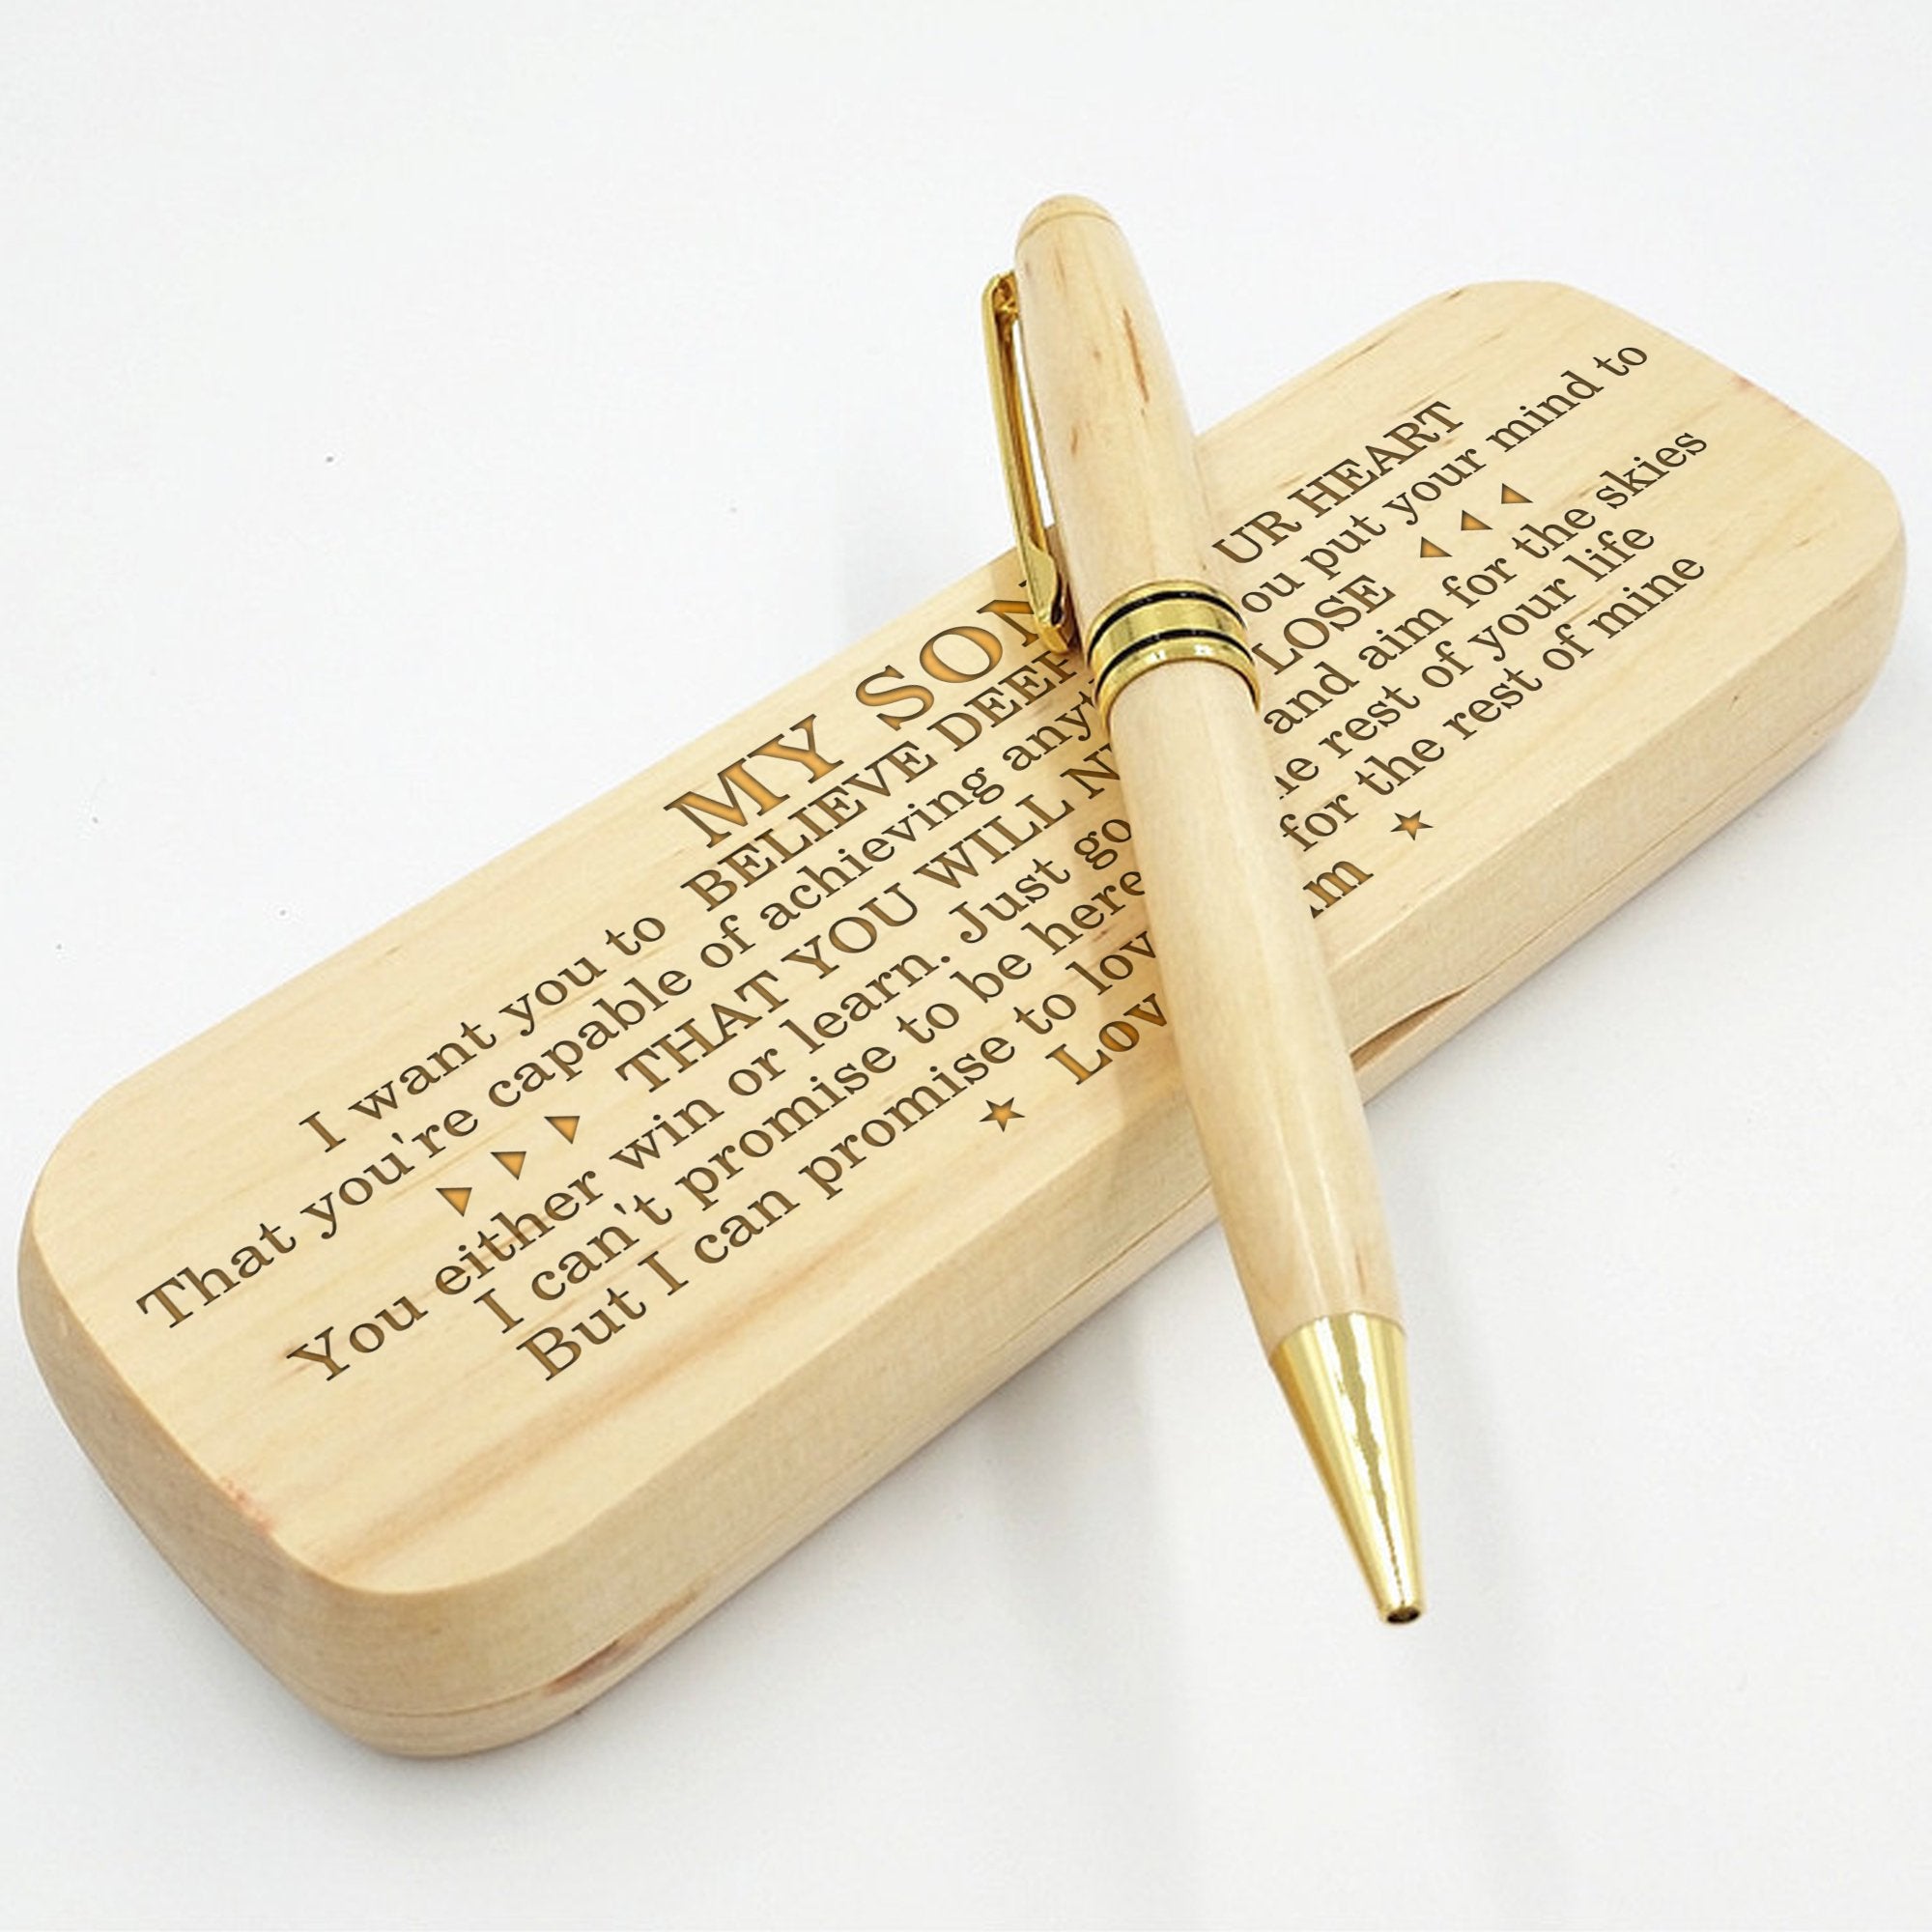 MY SON
I want you to BELIEVE DEEP UR HEART
That you're capable of achieving you put your mind to
THAT YOU WILL LOSE
You either win or learn. Just go and aim for the skies
I can't promise to be here rest of your life
But I can promise to for the rest of mine